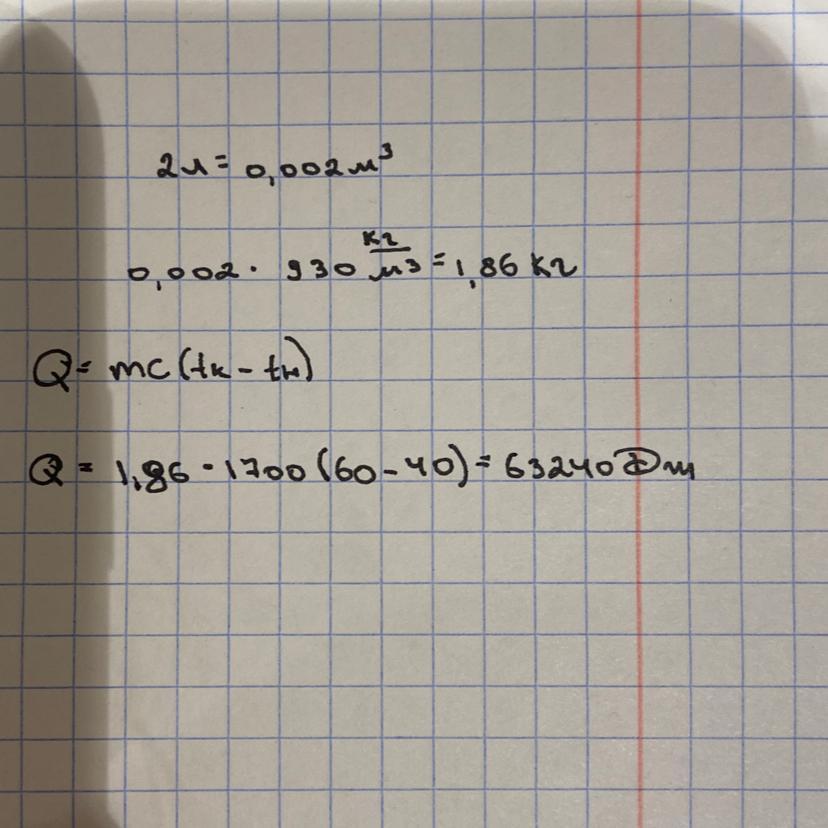 2л = 0,002 м³
0,002 · 930 кг/м³ = 1,86 кг
Q = mc(tк - tн)
Q = 1,86 · 1700 (60 - 40) = 63240 Дж